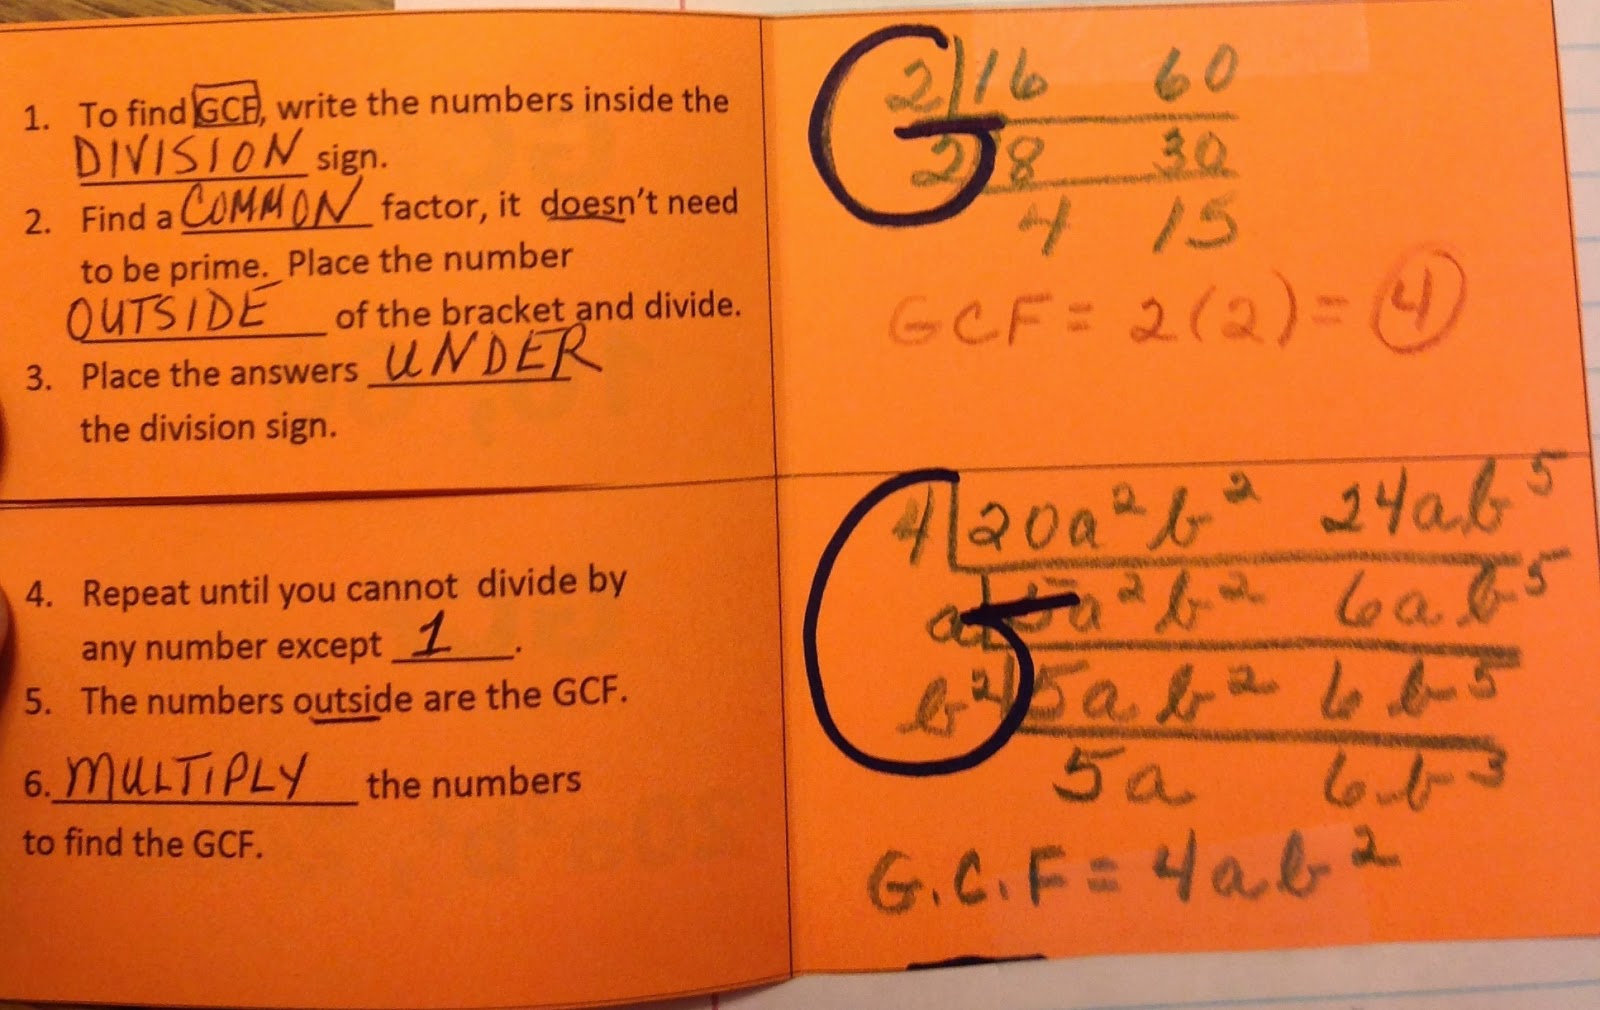 1. To find GCF, write the numbers inside the
DIVISION sign.
2. Find a COMMON factor, it doesn't need
to be prime. Place the number
OUTSIDE of the bracket and divide.
3. Place the answers UNDER
the division sign.
4. Repeat until you cannot divide by
any number except 1.
5. The numbers outside are the GCF.
6. MULTIPLY the numbers
to find the GCF.
2 16 60
2 8 30
4 15
GCF = 2(2) = 4
4 20a² b² 24ab⁵
a 5a² b² 6ab⁵
b² 5ab² 6b⁵
5a 6b³
G.C.F = 4ab²